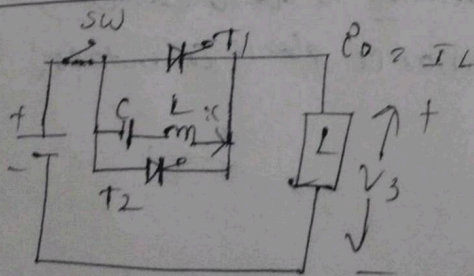 SW
T1
e0 = IL
C
L
ic
+
-
T2
L
+
V3